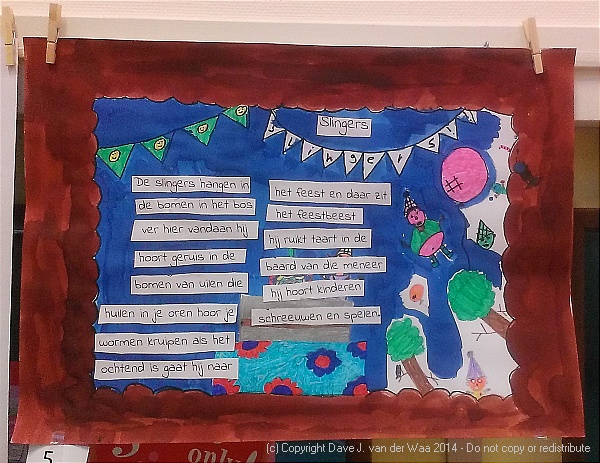 Slingers
Slingers
De slingers hangen in
de bomen in het bos
ver hier vandaan hij
hoort geruis in de
bomen van uilen die
huilen in je oren hoor je
wormen kruipen als het
ochtend is gaat hij naar
het feest en daar zit
het feestbeest
hij ruikt taart in de
baard van die meneer
hij hoort kinderen
schreeuwen en spelen.
5
only!
(c) Copyright Dave J. van der Waa 2014 - Do not copy or redistribute